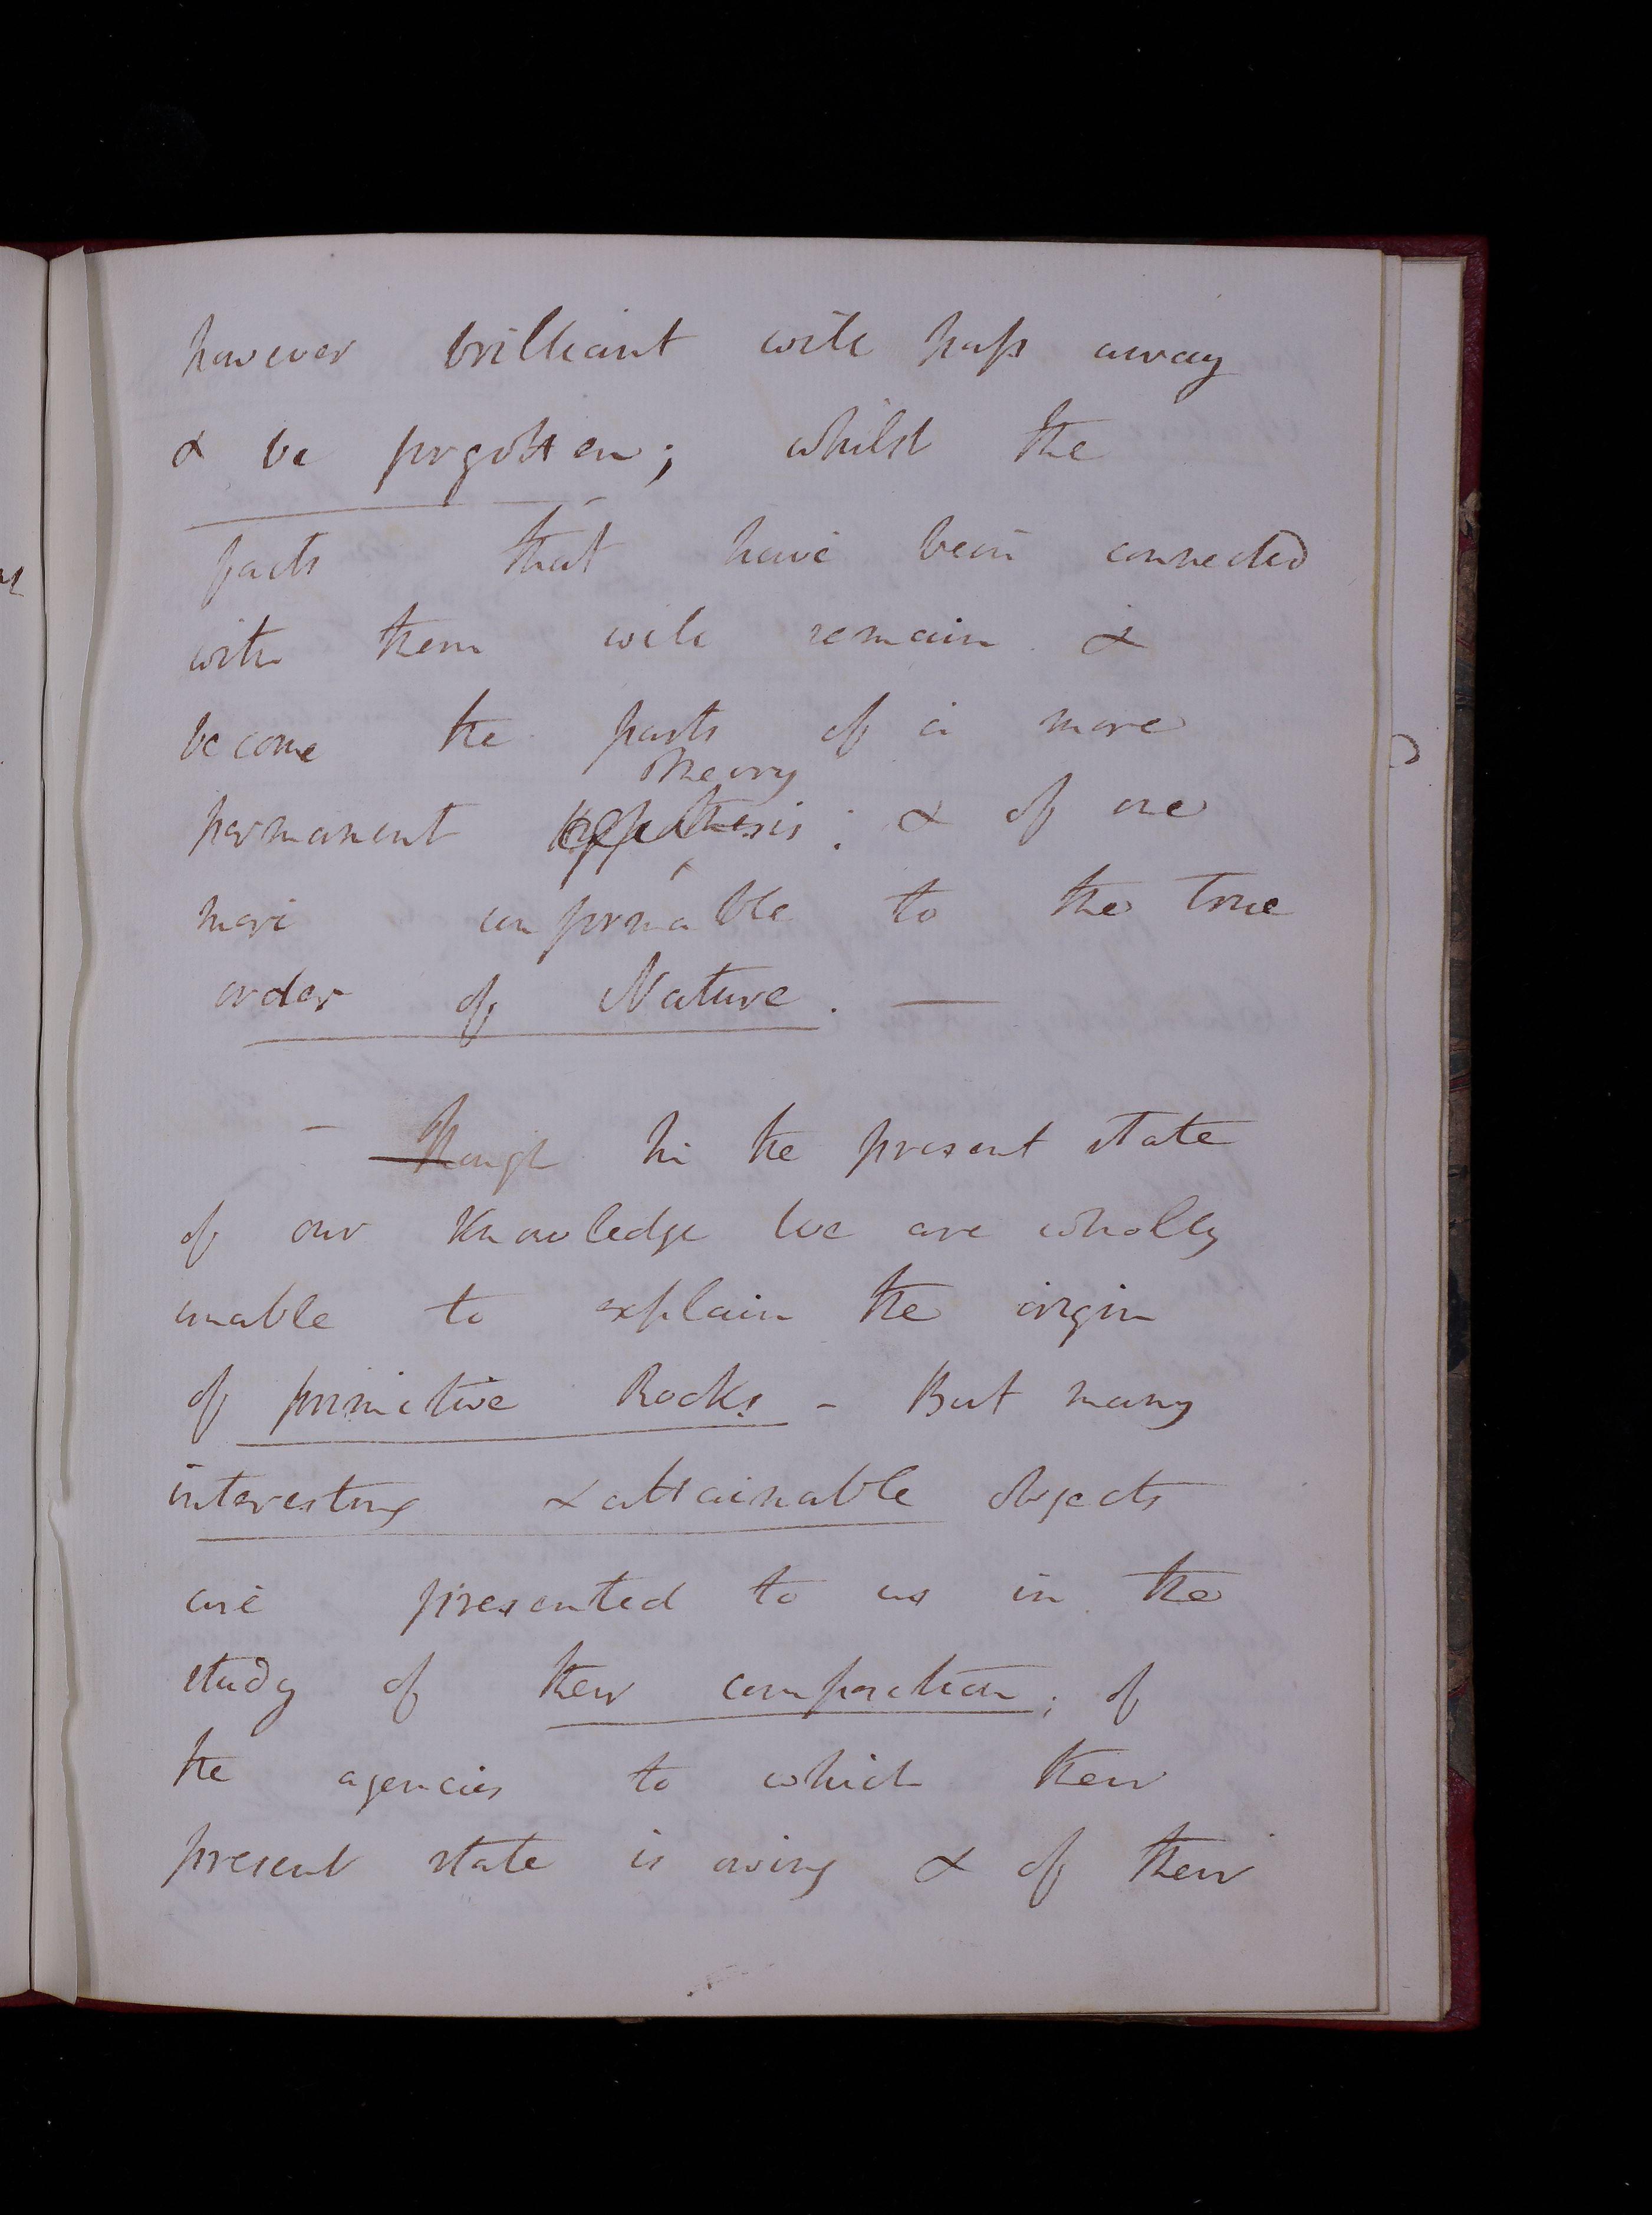 however brilliant will pass away
& be forgotten; whilst the
facts that have been connected
with them will remain &
become the parts of a more
theory
permanent hypothesis: & of one
more conformable to the true
order of Nature. —
— Though in the present state
of our knowledge we are wholly
unable to explain the origin
of primitive Rocks - But many
interesting & attainable objects
are presented to us in the
study of their composition; of
the agencies to which their
present state is owing & of their